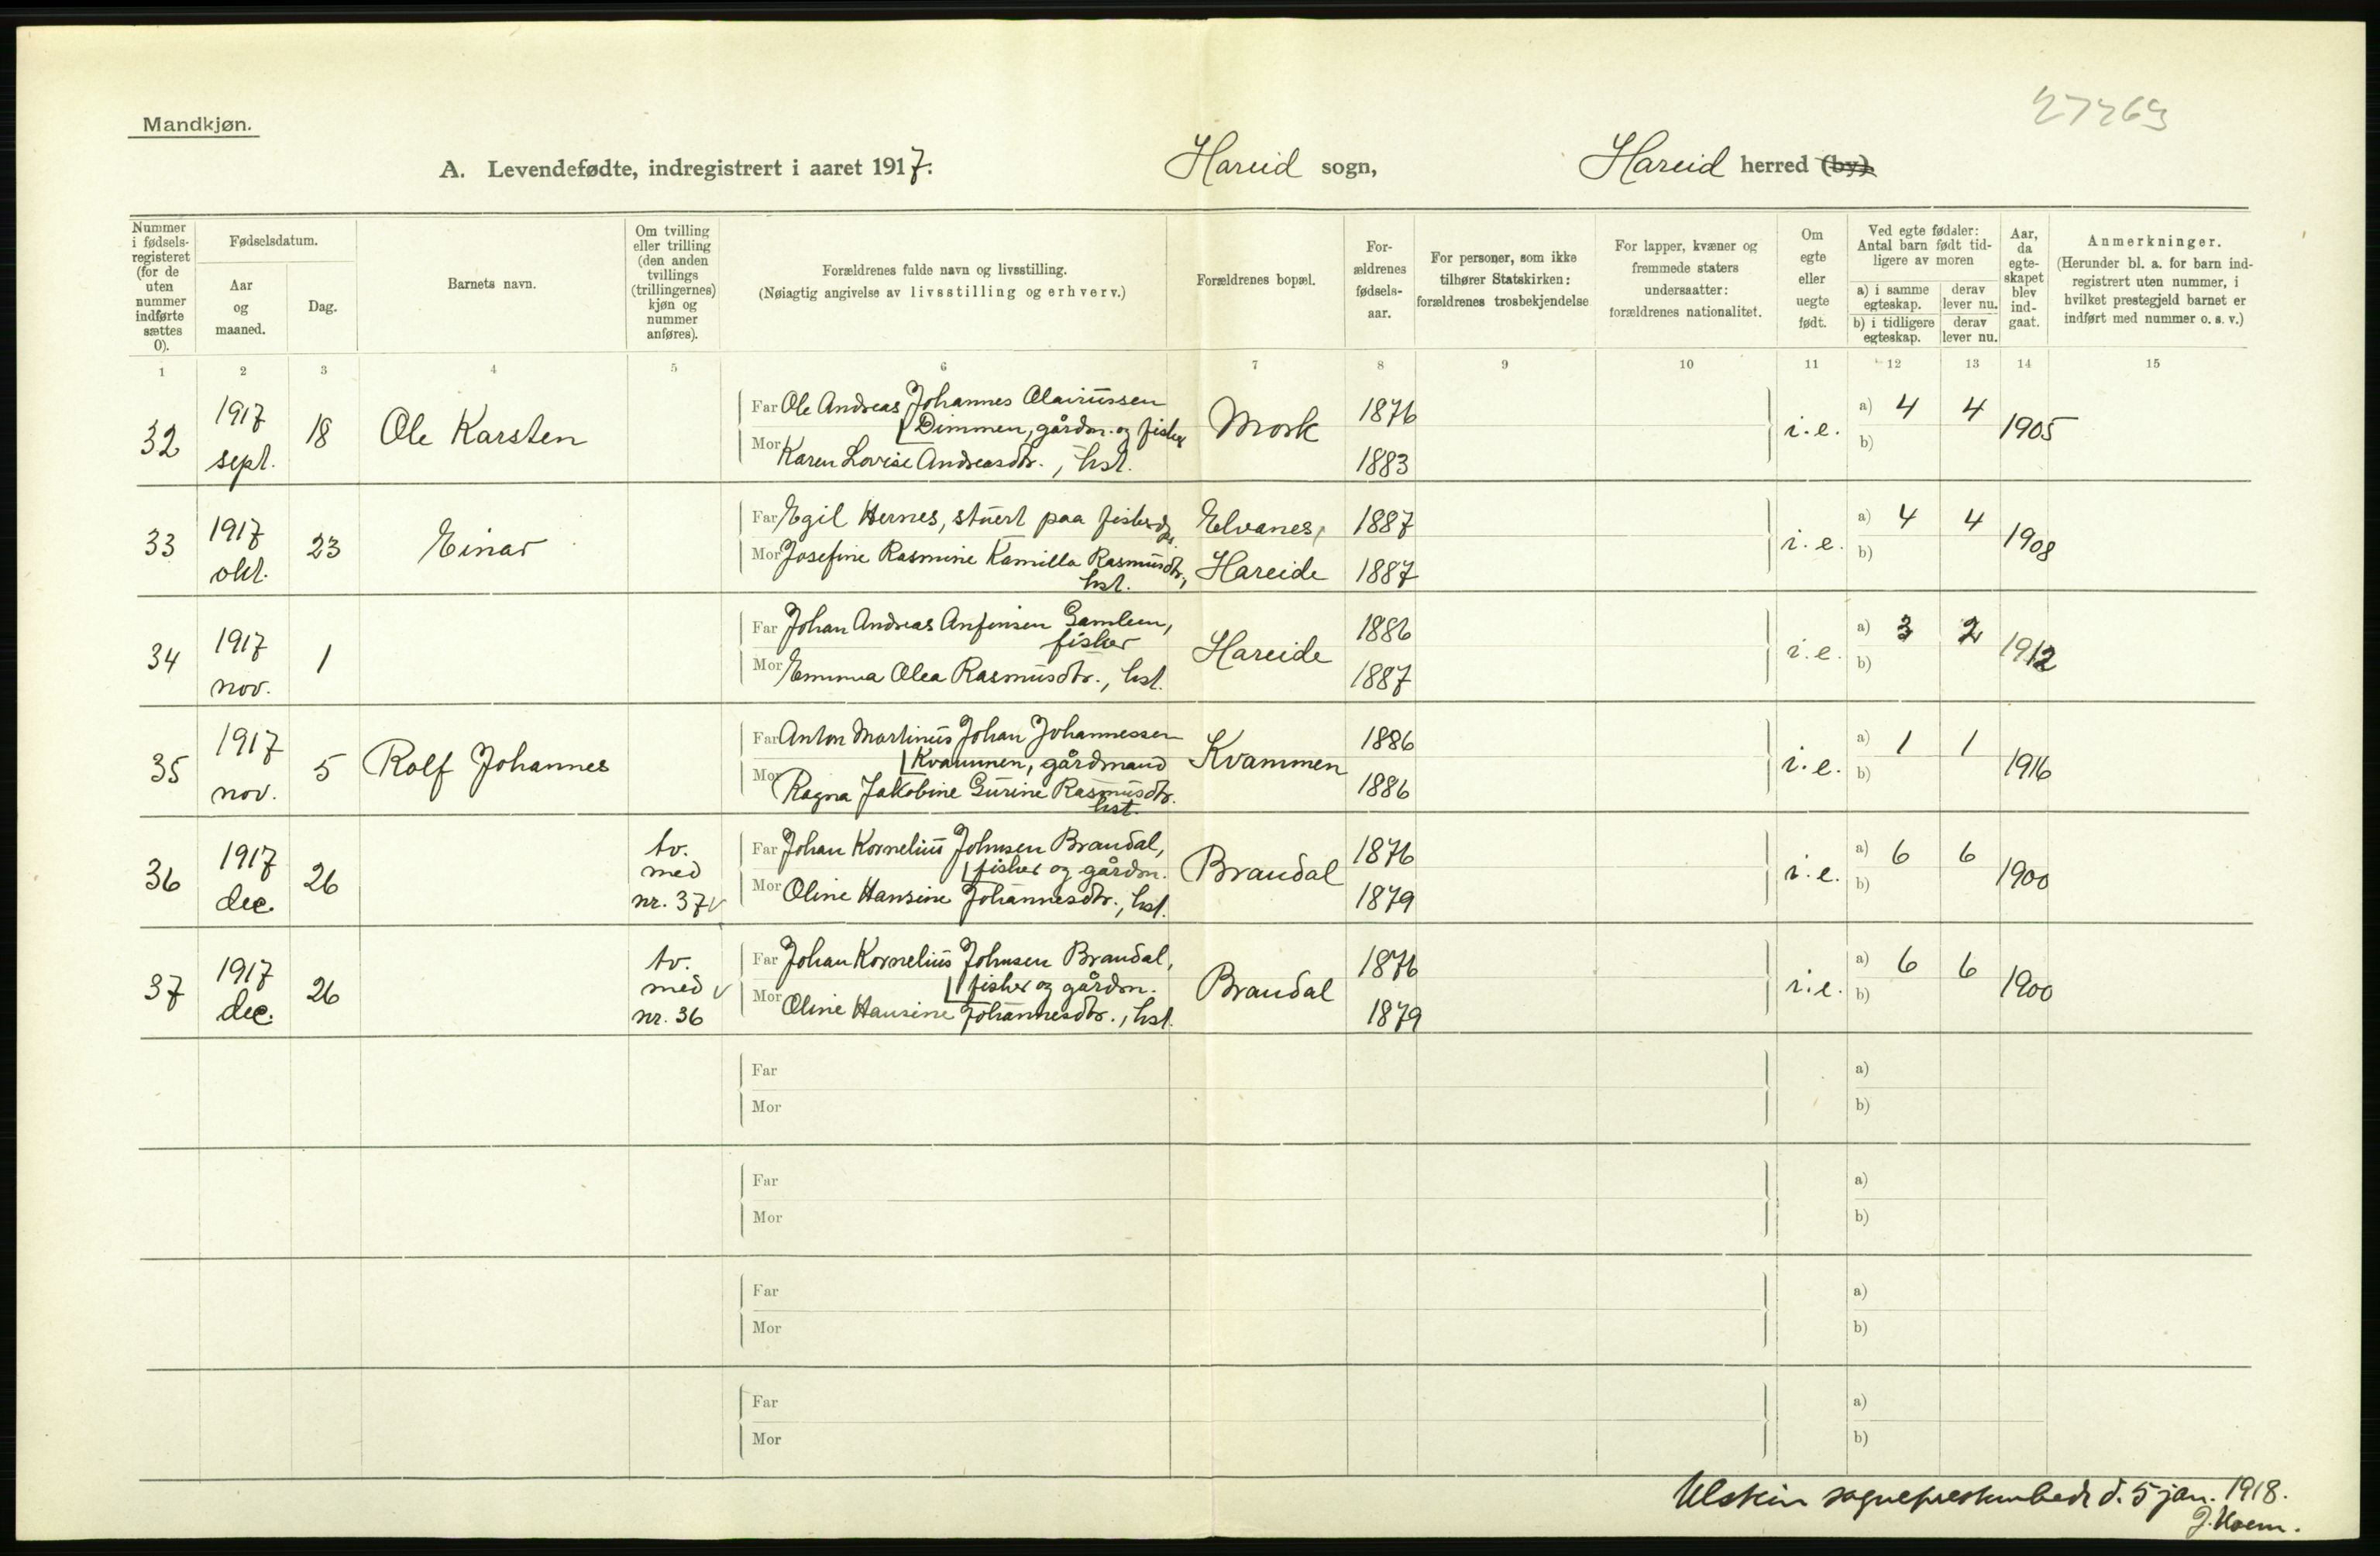 27269
Mandkjøn.
A. Levendefødte, indregistrert i aaret 1917. Hareid sogn, Hareid herred (by).
Nummer i fødsels-registeret (for de uten nummer indførte sættes 0).
Fødselsdatum.
Aar og maaned.
Dag.
Barnets navn.
Om tvilling eller trilling (den anden tvillings (trillingernes) kjøn og nummer anføres).
Forældrenes fulde navn og livsstilling.
(Nøiagtig angivelse av livsstilling og erhverv.)
Forældrenes bopæl.
For-ældrenes fødsels-aar.
For personer, som ikke tilhører Statskirken: forældrenes trosbekjendelse
For lapper, kvæner og fremmede staters undersaatter: forældrenes nationalitet.
Om egte eller uegte født.
Ved egte fødsler: Antal barn født tid-ligere av moren
a) i samme egteskap. derav lever nu.
b) i tidligere egteskap. derav lever nu.
Aar, da egte-skapet blev ind-gaat.
Anmerkninger.
(Herunder bl. a. for barn ind-registrert uten nummer, i hvilket prestegjeld barnet er indført med nummer o. s. v.)
1 2 3 4 5 6 7 8 9 10 11 12 13 14 15
32 1917 sept. 18 Ole Karsten
Far Ole Andreas Johannes
Dimmen, gårdm. og fisker
Mor Karen Lovise Andreasdtr., hst.
Mork 1876 1883 i.e. a) 4 4 b) 1905
33 1917 okt. 23 Einar
Far Egil Hernes, stuert paa
Mor Josefine Rasmine Kamilla Rasmusdtr.,
hst.
Elvanes, Hareide 1887 1887 i.e. a) 4 4 b) 1908
34 1917 nov. 1
Far Johan Andreas Anfinsen Gamlem,
fisker
Mor Emma Olea Rasmusdtr., hst.
Hareide 1886 1887 i.e. a) 3 2 b) 1912
35 1917 nov. 5 Rolf Johannes
Far Anton Martinus Johan Johannessen
Kvammen, gårdmand
Mor Ragna Jakobine Gurine Rasmusdtr.
hst.
Kvammen 1886 1886 i.e. a) 1 1 b) 1916
36 1917 dec. 26 tv. med nr. 37
Far Johan Kornelius Johnsen Brandal,
fisker og gårdm.
Mor Oline Hansine Johannesdtr., hst.
Brandal 1876 1879 i.e. a) 6 6 b) 1900
37 1917 dec. 26 tv. med nr. 36
Far Johan Kornelius Johnsen Brandal,
fisker og gårdm.
Mor Oline Hansine Johannesdtr., hst.
Brandal 1876 1879 i.e. a) 6 6 b) 1900
Far a)
Mor b)
Far a)
Mor b)
Far a)
Mor b)
Far a)
Mor b)
Ulstein sogneprestembede d. 5 jan. 1918.